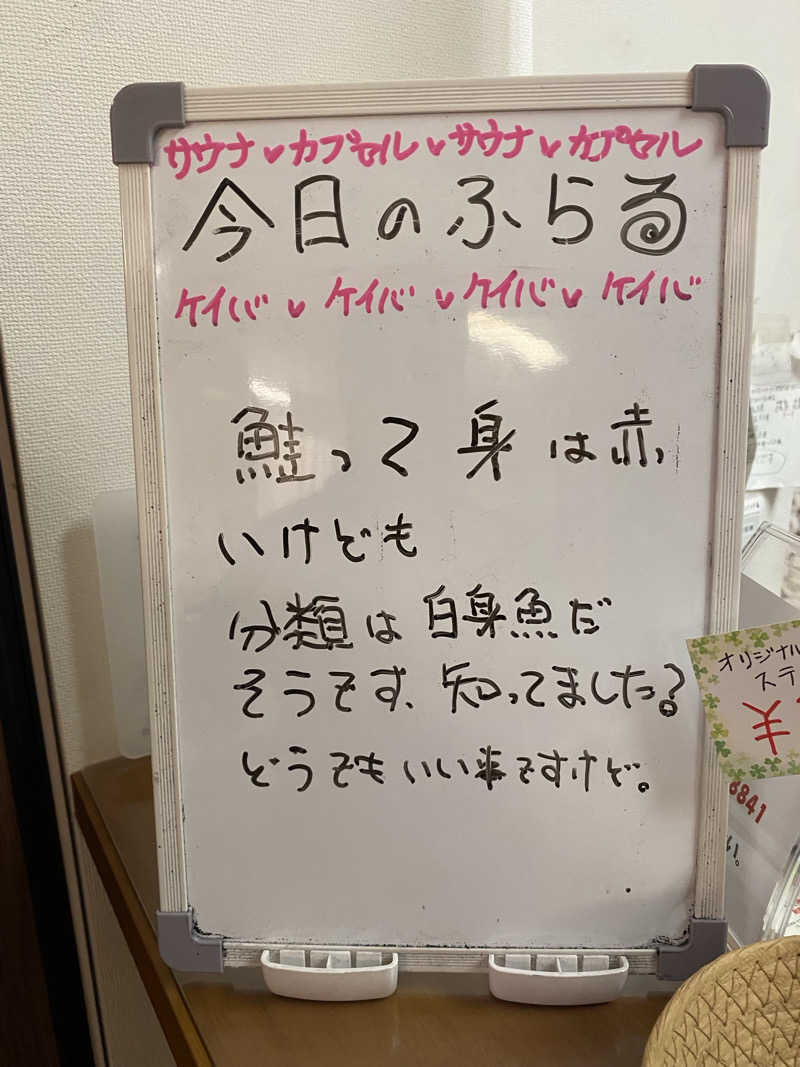 サウナ♥カプセル♥サウナ♥カプセル
今日のふらる
ケイバ♥ケイバ♥ケイバ♥ケイバ
鮭って身は赤
いけども
分類は白身魚だ
そうです、知ってました?
どうでもいい事ですけど。
オリジナル
ステ
¥
6841